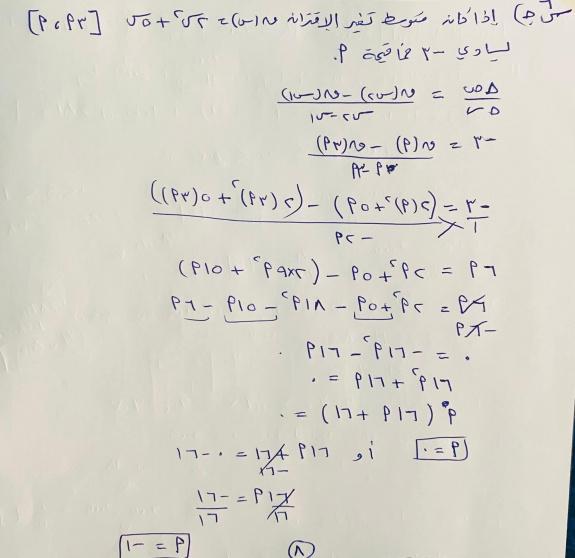 س٢ ج) إذا كان متوسط تغير الإقتران ق(س) = ٢س٢ + ٥س [٣م، م]
يساوي -٣ فما قيمة م.
Δص/Δس = (ق(س٢) - ق(س١))/(س٢ - س١)
-٣ = (ق(م) - ق(٣م))/(م - ٣م)
-٣/١ = ((٢(م)٢ + ٥م) - (٢(٣م)٢ + ٥(٣م)))/-٢م
٦م = ٢م٢ + ٥م - (٢×٩م٢ + ١٥م)
٦م = ٢م٢ + ٥م - ١٨م٢ - ١٥م - ٦م
-٦م
٠ = -١٦م٢ - ١٦م
١٦م٢ + ١٦م = ٠
م(١٦م + ١٦) = ٠
م = ٠ أو ١٦م + ١٦ = ٠ - ١٦
-١٦
١٦م/١٦ = -١٦/١٦
م = -١
٨